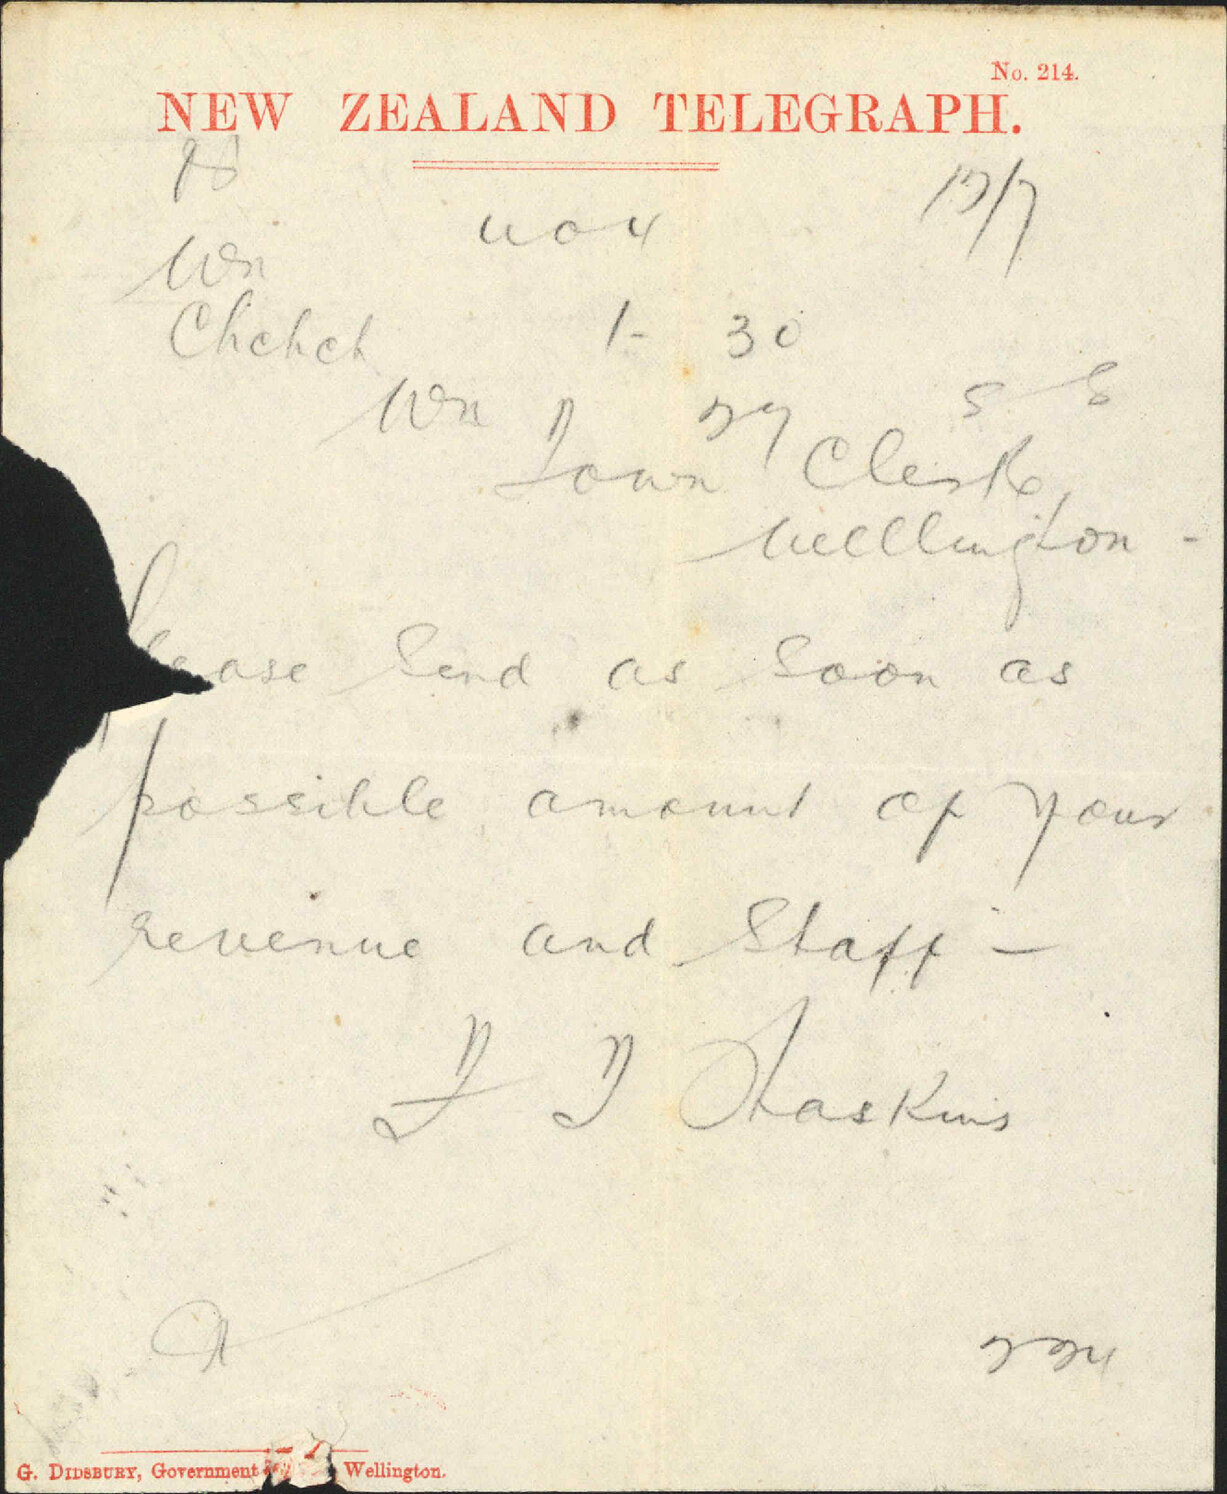 No. 214.
NEW ZEALAND TELEGRAPH.
Wn
Chchch 1- 30
Wn
Town Clerk,
Wellington -
Please Send as Soon as
possible amount of your
revenue and Staff -
F T Haskins
G. DIDSBURY, Government Wellington.